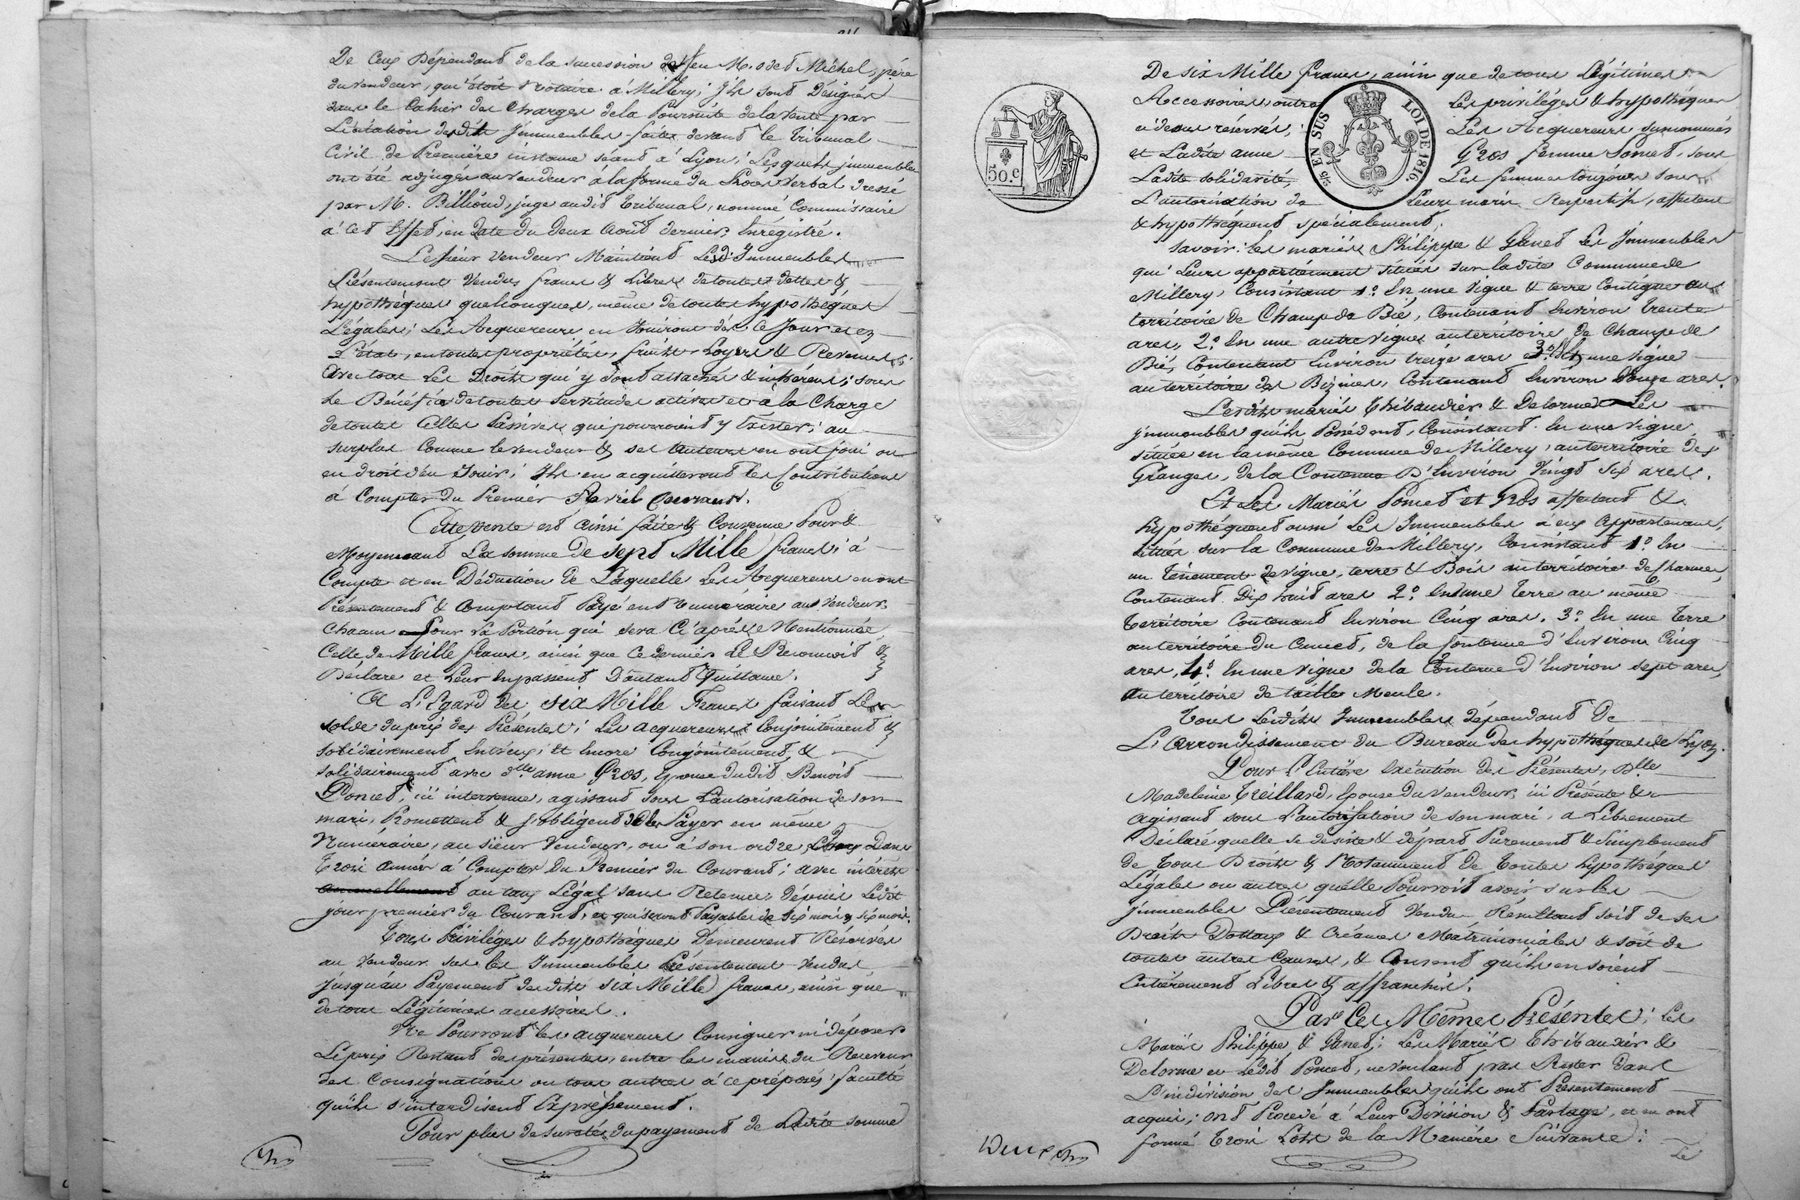 De Ceux Dépendant de la succession de feu M. odet Michel, père
du vendeur, qui étoit Notaire à Millery; ils sont Désignés
dans le Cahier des Charges de la Poursuite de la vente par
Licitation desdits Jmmeubles faite devant le Tribunal
Civil de Première instance séant à Lyon; Lesquels jmmeubles
ont été adjugés au vendeur à la forme du Procès Verbal Dressé
par M. Billioud, juge audit Tribunal, nommé Commissaire
à Cet Effet, en date du Deux Août dernier, Enrégistré.
Le sieur vendeur Maintient Lesd. Jmmeubles
Présentement Vendus francs & Libres de toutes dettes &
hypothèques quelconques, même de toutes hypothèques
Légales; Les Acquereurs en Jouiront dès ce Jour et en
L'état, en toutes propriétés, fruits, Loyers & Revenus;
Avec tous Les Droits qui y sont attachés & inhérens; sous
Le Bénéfice de toutes servitudes actives et à la Charge
de toutes Celles Passives que pourroient y Exister; au
surplus Comme le vendeur & ses auteurs en ont joui ou
eu droit d'en Jouir; Ils en acquitteront les Contributions
à Compter du Premier Avril Courant.
Cette vente est ainsi faite & Convenue Pour &
Moyennant La somme De sept Mille francs; à
Compte et en Déduction de Laquelle Les Acquereurs en ont
Présentement & Comptant Payé en Numéraire au Vendeur,
Chacun Pour la Portion qui sera Ci après Mentionnée
Celle de Mille francs, ainsi que Ce dernier Le Reconnoit &
Déclare et Leur En passent D'autant Quittance.
A L'Egard des six Mille Francs faisant Le
solde du prix des Présentes; Les acquereurs Conjointement &
solidairement Entr'eux; Et Encore Conjointement &
solidairement avec d.lle anne Gros, Epouse dudit Benoit
Poncet, ici intervenue, agissant sous L'autorisation de son
mari, Promettent & s'obligent de les Payer en même
Numéraire, au sieur Vendeur, ou à son ordre, Dans
Trois Années à Compter du Premier du Courant; avec intérêts
annuellement au taux Légal sans Retenue, Dépuis Ledit
jour premier du Courant, et qui seront Payables de six mois en six mois.
Tous Privilèges & hypothèques Demeurent Réservés
au Vendeur sur les Jmmeubles Présentement Vendus
jusqu'au Payement desdits six Mille francs, ainsi que
de tous Légitimes accessoires.
Ne Pourront les acquereurs Consigner ni déposer
Le prix Restant des présentes, entre les mains du Receveur
des Consignations ou tous autres à ce préposés; faculté
qu'ils s'interdisent Expressément.
Pour plus de suretés du payement de Ladite somme
De six Mille francs, ainsi que de tous Légitimes
Accessoires, outre Les privilèges & hypothèques
ci dessus réservés, Les Acquereurs surnommés
et Ladite anne Gros femme Poncet, sous
Ladite solidarité, Les femmes toujours sous
L'autorisation de Leurs maris Respectifs, affectent
& hypothèquent spécialement;
Savoir: Les mariés Philippe & Ganet Les Jmmeubles
qui Leurs appartiennent situés sur Ladite Commune de
Millery, Consistant 1.° En une vigne & terre Contigue au
territoire de Champ de Bié, Contenant Environ trente
ares, 2.° En une autre vigne au territoire de Champ de
Bié, Contenant Environ treize ares 3.° Et une vigne
au territoire des Bizines, Contenant Environ Douze ares.
Lesdits mariés Thibaudier & Delorme Les
jmmeubles qu'ils Possédent, Consistant En une vigne
située en la même Commune de Millery, au territoire des
Granges, de la Contenue D'Environ Vingt six ares.
Et Les Mariés Poncet et Gros affectent &
hypothèquent aussi Les Jmmeubles à eux Appartenans,
situés sur la Commune de Millery, Consistant 1.° En
un Ténement de Vigne, terre & Bois au territoire de Charmes,
Contenant Dix huit ares 2.° En une Terre au même
Territoire Contenant Environ Cinq ares. 3.° En une Terre
au territoire du Cumet, de la Contenue d'Environ Cinq
ares, 4.° En une Vigne de la Contenue d'Environ sept ares,
au territoire de taille Meule.
Tous Lesdits Jmmeubles dépendant De
L'arrondissement du Bureau des hypothèques de Lyon.
Pour L'Entière Exécution des Présentes, D.lle
Madeleine Treillard, Epouse du vendeur, ici Présente &
agissant sous L'autorisation de son mari, a Librement
Déclaré qu'elle se desiste & départ Purement & simplement
de tous Droits & Notamment De toutes hypothèques
Légales ou autres qu'elle Pourroit avoir sur les
jmmeubles Présentement Vendus, Résultant soit de ses
Droits Dottaux & Créances Matrimoniales & soit de
toutes autres Causes, & Consent qu'ils en soient
Entièrement Libres & affranchis.
Par Ces Mêmes Présentes; Les
Mariés Philippe & Ganet; Les Mariés Thibaudier &
Delorme et Ledit Poncet, ne voulant pas Rester dans
L'indivision des Jmmeubles qu'ils ont Présentement
acquis; ont Procédé à Leur Division & Partage, et en ont
formé Trois Lots de la Manière Suivante:
Le
50.c
EN SUS
LOI DE 1816.